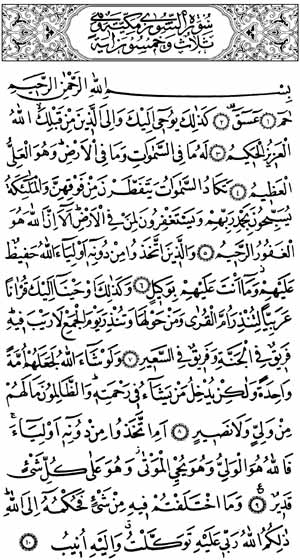 سُورَةُ الشُّورَىٰ مَكِّيَّةٌ وَهِيَ
ثَلَاثٌ وَخَمْسُونَ آيَةً
بِسْمِ اللهِ الرَّحْمٰنِ الرَّحِيمِ
حٰمٓ ﴿١﴾ عٓسٓقٓ ﴿٢﴾ كَذٰلِكَ يُوحٖٓي اِلَيْكَ وَاِلَى الَّذٖينَ مِنْ قَبْلِكَ اللهُ
الْعَزٖيزُ الْحَكٖيمُ ﴿٣﴾ لَهُ مَا فِي السَّمٰوَاتِ وَمَا فِي الْاَرْضِ وَهُوَ الْعَلِيُّ
الْعَظٖيمُ ﴿٤﴾ تَكَادُ السَّمٰوَاتُ يَتَفَطَّرْنَ مِنْ فَوْقِهِنَّ وَالْمَلٰٓئِكَةُ
يُسَبِّحُونَ بِحَمْدِ رَبِّهِمْ وَيَسْتَغْفِرُونَ لِمَنْ فِي الْاَرْضِ اَلَٓا اِنَّ اللهَ هُوَ
الْغَفُورُ الرَّحٖيمُ ﴿٥﴾ وَالَّذٖينَ اتَّخَذُوا مِنْ دُونِهٖٓ اَوْلِيَٓاءَ اللهُ حَفٖيظٌ
عَلَيْهِمْ وَمَٓا اَنْتَ عَلَيْهِمْ بِوَكٖيلٍ ﴿٦﴾ وَكَذٰلِكَ اَوْحَيْنَٓا اِلَيْكَ قُرْاٰنًا
عَرَبِيًّا لِتُنْذِرَ اُمَّ الْقُرٰى وَمَنْ حَوْلَهَا وَتُنْذِرَ يَوْمَ الْجَمْعِ لَا رَيْبَ فٖيهِ
فَرٖيقٌ فِي الْجَنَّةِ وَفَرٖيقٌ فِي السَّعٖيرِ ﴿٧﴾ وَلَوْ شَٓاءَ اللهُ لَجَعَلَهُمْ اُمَّةً
وَاحِدَةً وَلٰكِنْ يُدْخِلُ مَنْ يَشَٓاءُ فٖي رَحْمَتِهٖ وَالظَّالِمُونَ مَا لَهُمْ
مِنْ وَلِيٍّ وَلَا نَصٖيرٍ ﴿٨﴾ اَمِ اتَّخَذُوا مِنْ دُونِهٖٓ اَوْلِيَٓاءَ
فَاللهُ هُوَ الْوَلِيُّ وَهُوَ يُحْيِ الْمَوْتٰى وَهُوَ عَلٰى كُلِّ شَيْءٍ
قَدٖيرٌ ﴿٩﴾ وَمَا اخْتَلَفْتُمْ فٖيهِ مِنْ شَيْءٍ فَحُكْمُهُٓ اِلَى اللهِ
ذٰلِكُمُ اللهُ رَبّٖي عَلَيْهِ تَوَكَّلْتُ وَاِلَيْهِ اُنٖيبُ ﴿١٠﴾